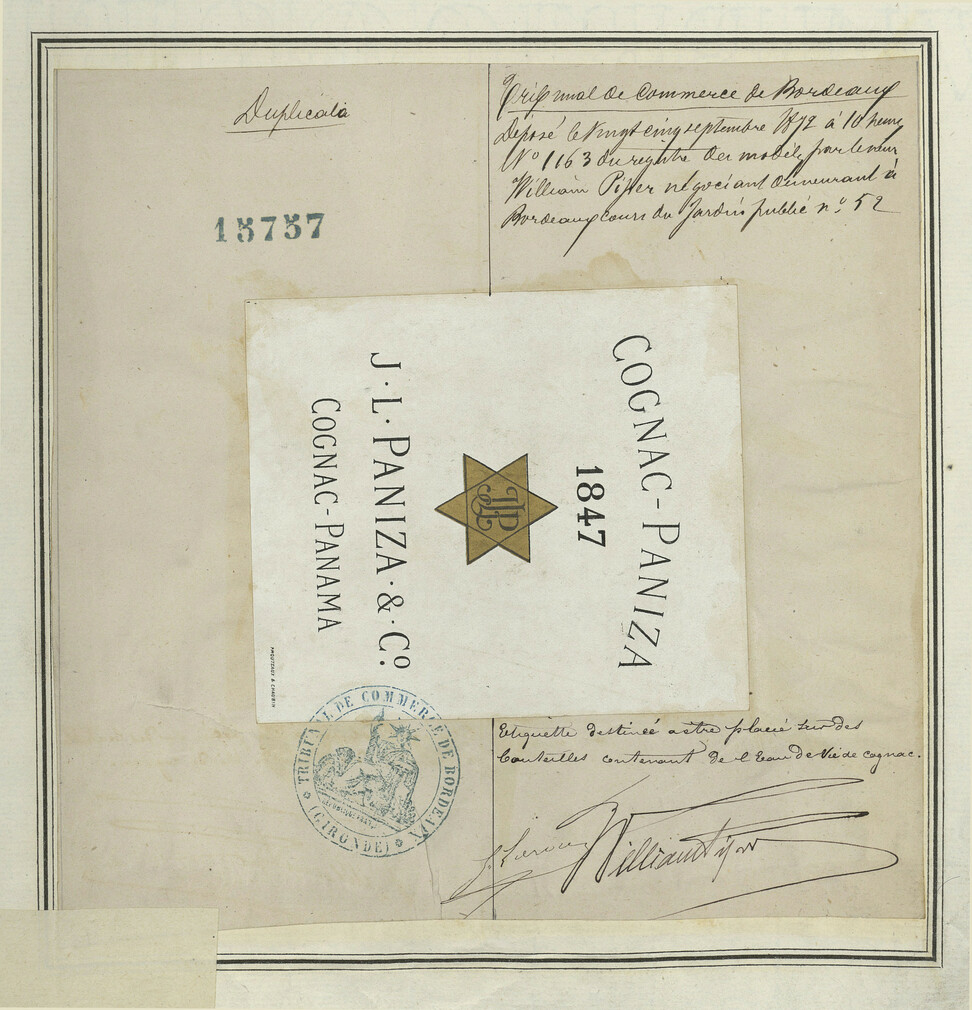 Duplicata
15757
Tribunal de Commerce de Bordeaux
Déposé le Vingt cinq septembre 1872 à 10 heures
N° 1163 du registre des modèles, par le sieur
William négociant demeurant à
Bordeaux cours du Jardin public n° 52
COGNAC-PANIZA
1847
J·L·PANIZA·&·Co.
COGNAC-PANAMA
TRIBUNAL DE COMMERCE DE BORDEAUX
(GIRONDE)
Etiquette destinée a etre placée sur des
bouteilles contenant de l'Eau de Vie de Cognac.
William